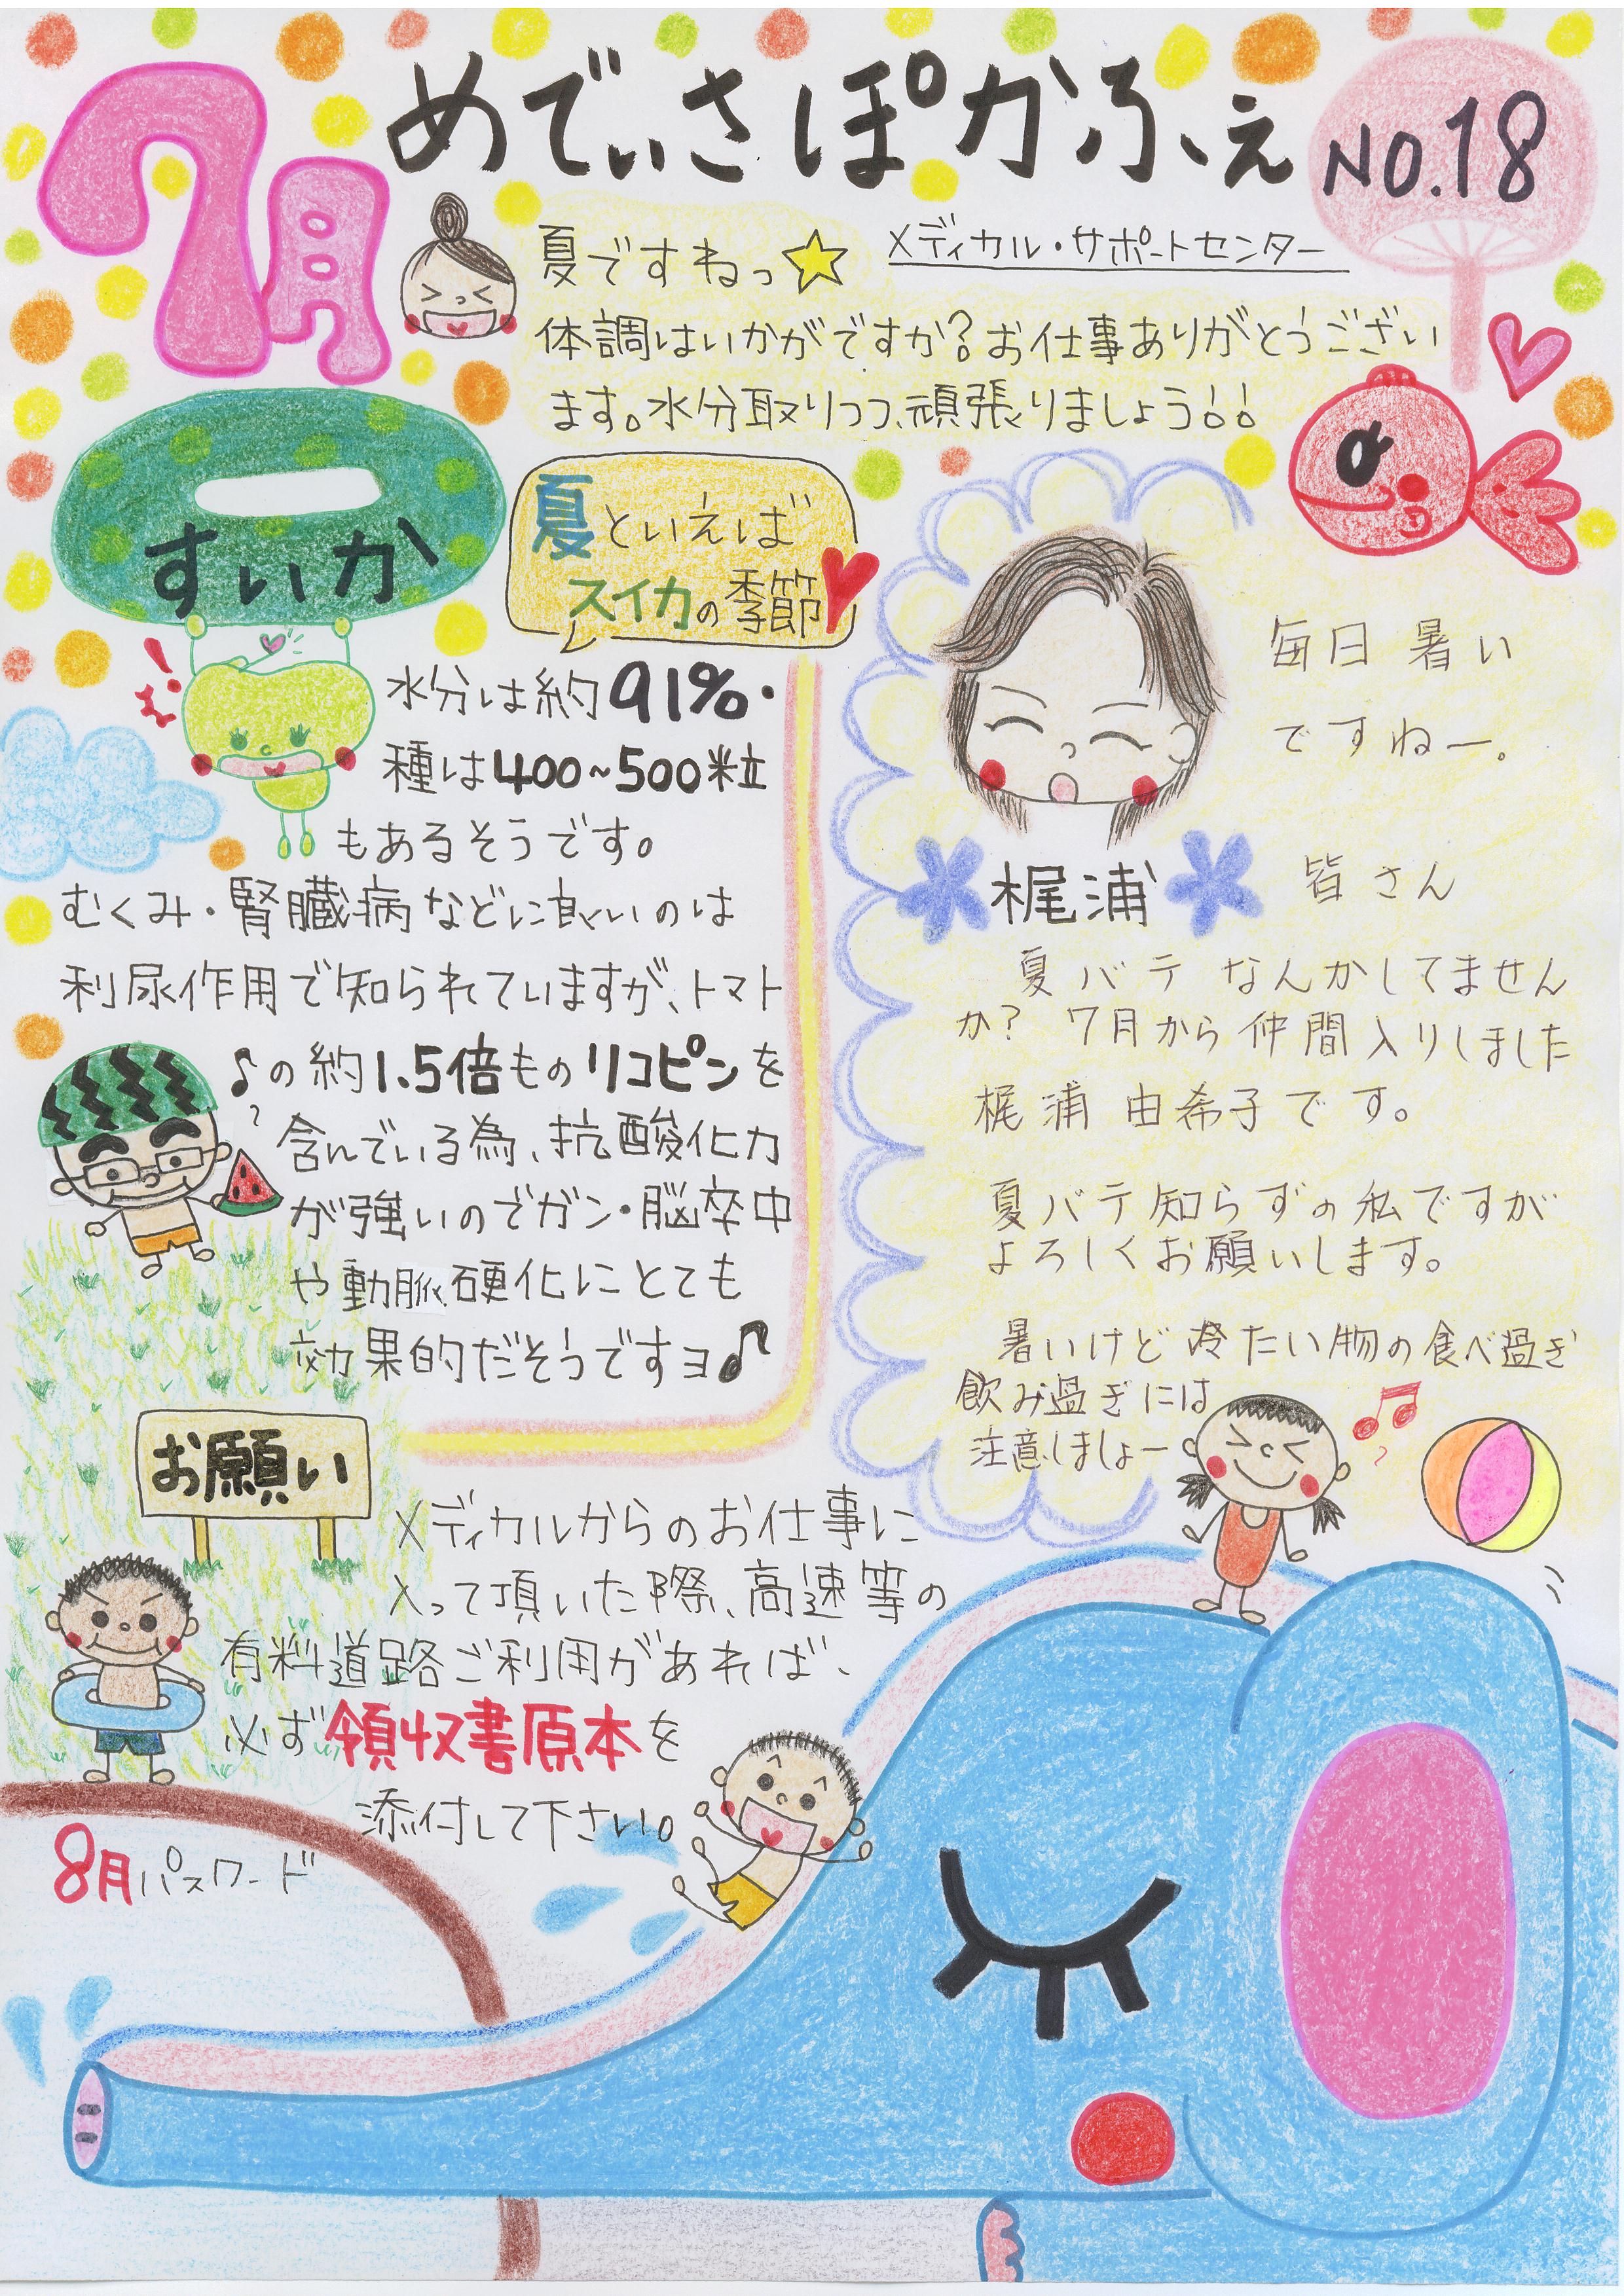 7月
めでぃさぽかふぇ
NO.18
メディカル・サポートセンター
夏ですねっ☆
体調はいかがですか?お仕事ありがとうござい
ます。水分取りつつ、頑張りましょう!!
すいか
夏といえば
スイカの季節
水分は約91%・
種は400~500粒
もあるそうです。
むくみ・腎臓病などに良いのは
利尿作用で知られていますが、トマト
♪の約1.5倍ものリコピンを
含んでいる為、抗酸化力
が強いのでガン・脳卒中
や動脈硬化にとても
効果的だそうですヨ♪
毎日暑い
ですねー。
梶浦
皆さん
夏バテなんかしてません
か? 7月から仲間入りしました
梶浦由希子です。
夏バテ知らずの私ですが
よろしくお願いします。
暑いけど冷たい物の食べ過ぎ
飲み過ぎには
注意しましょー
お願い
メディカルからのお仕事に
入って頂いた際、高速等の
有料道路ご利用があれば、
必ず領収書原本を
添付して下さい。
8月パスワード